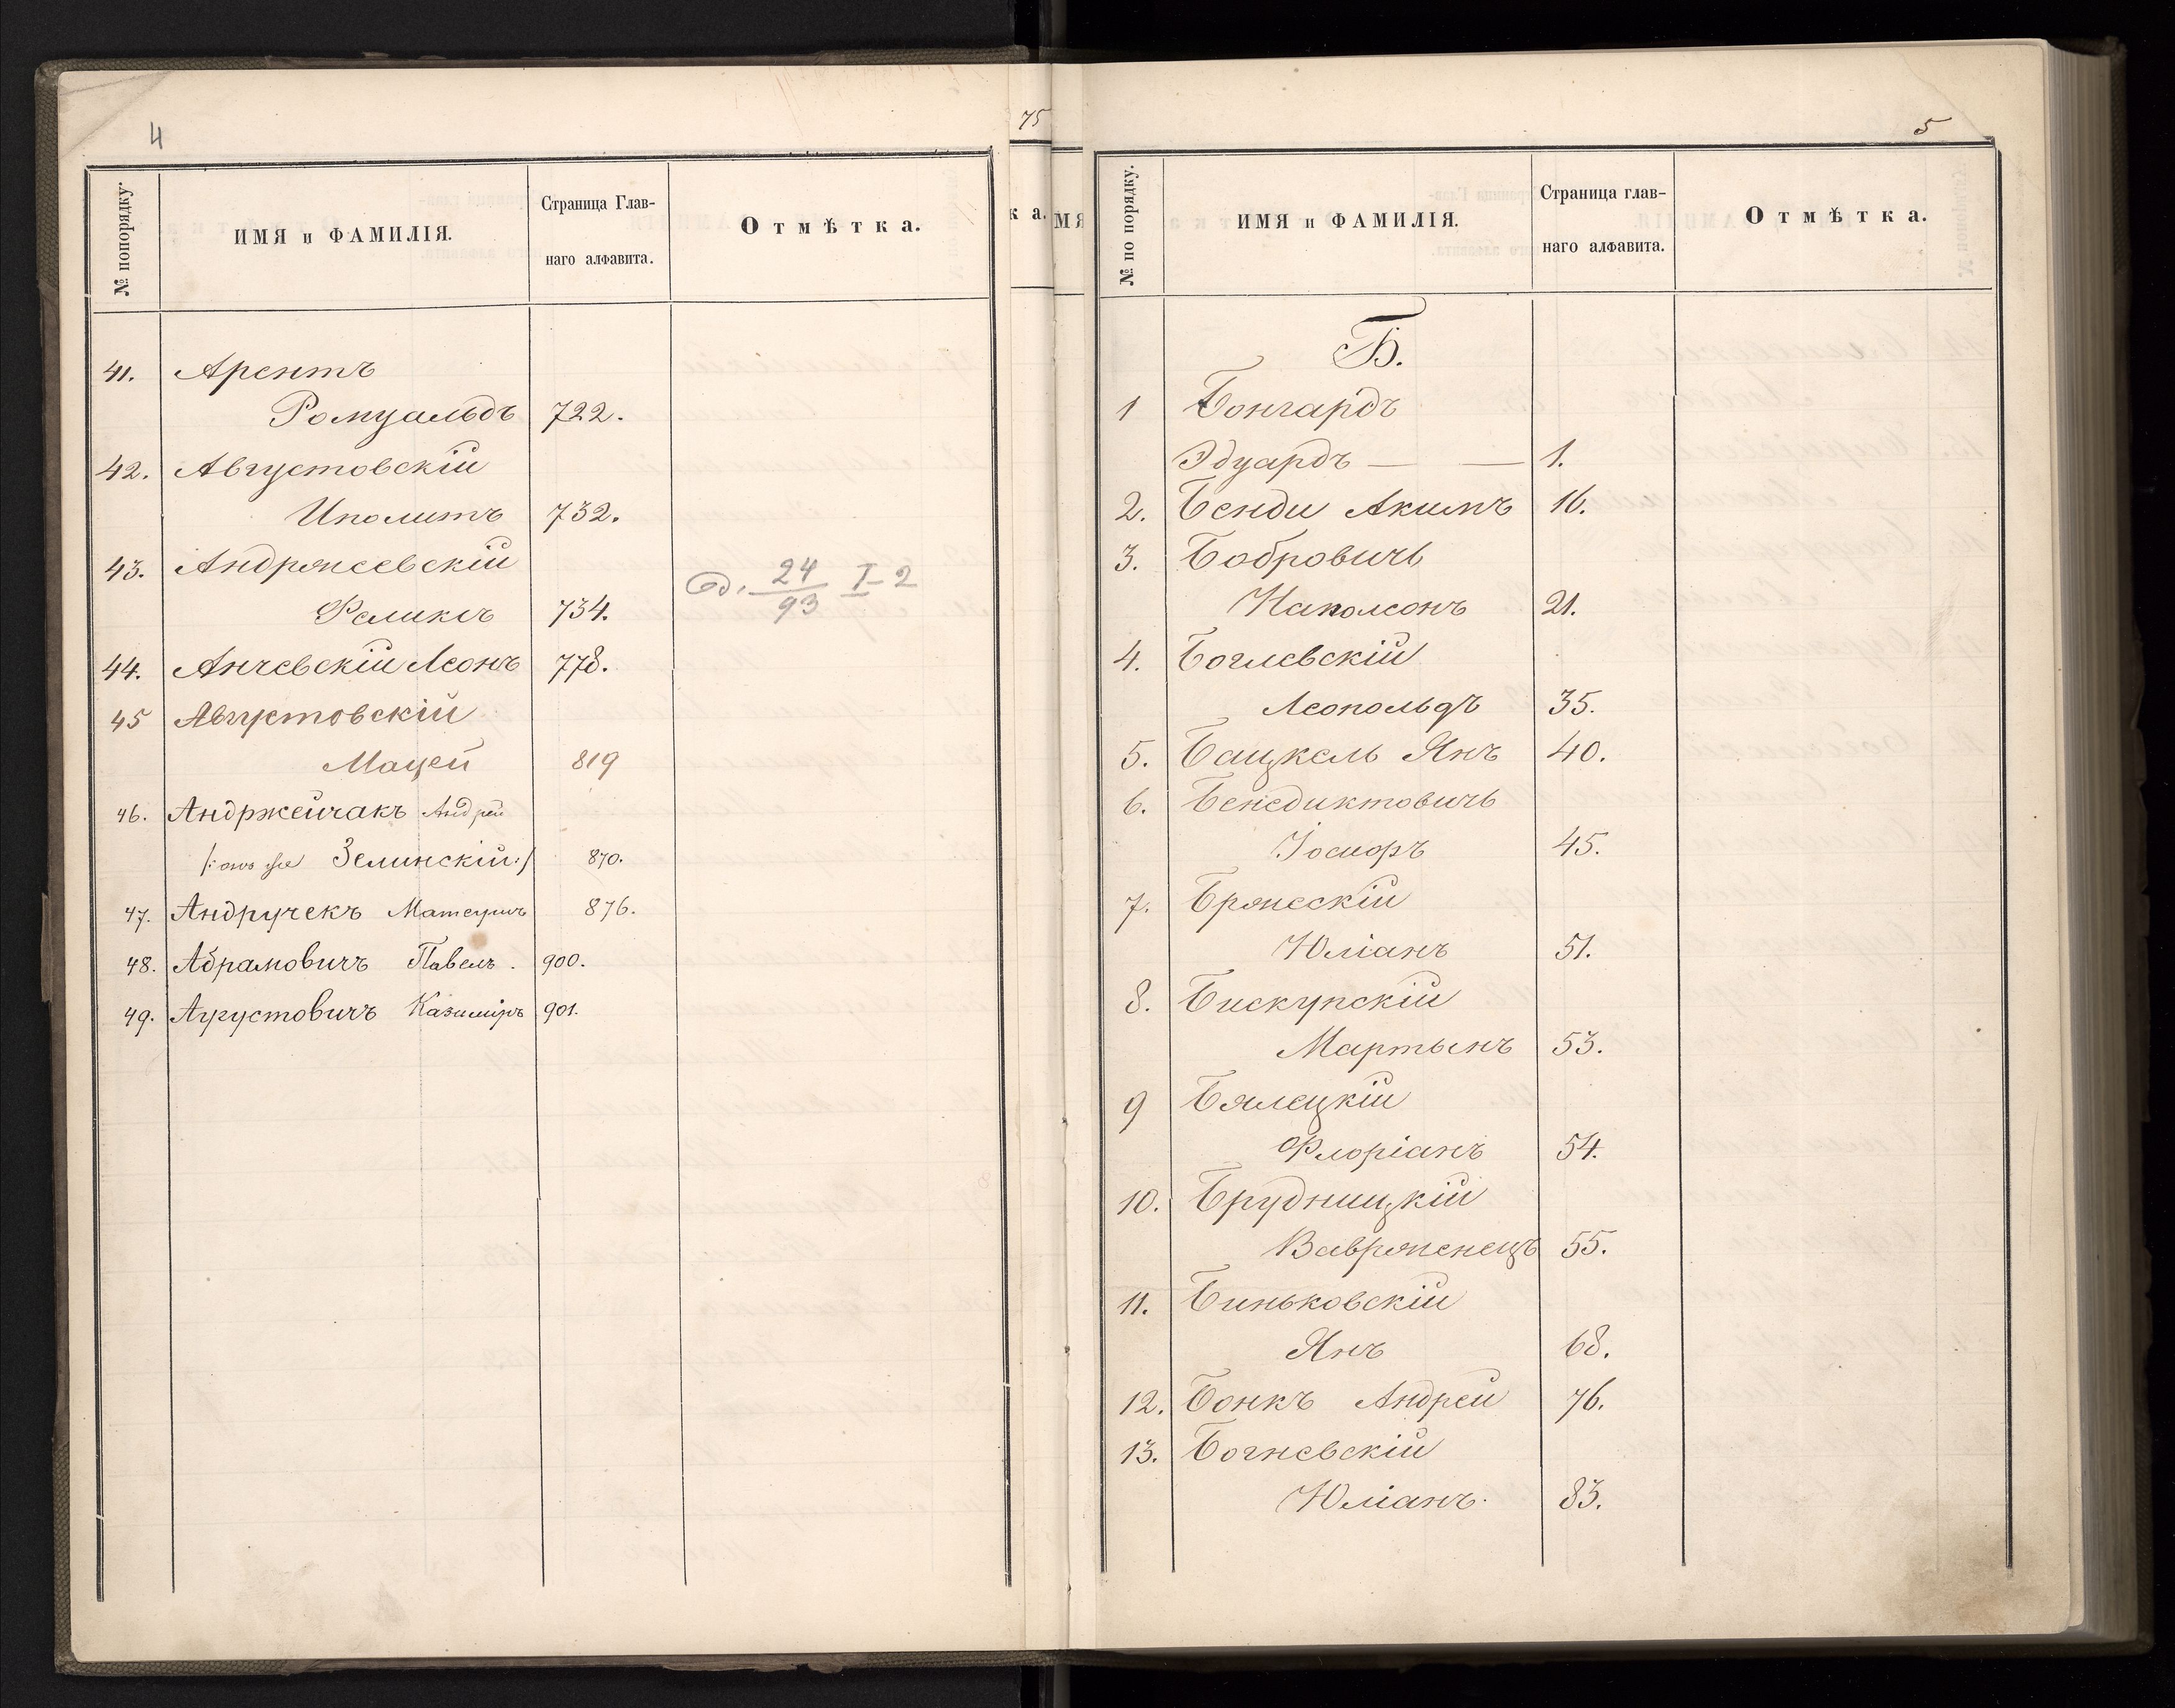 4
№ попорядку.
ИМЯ и ФАМИЛІЯ.
Страница Глав-
наго алфавита.
Отмѣтка.
41. Арентъ
Ромуальдъ 722.
42. Августовскій
Иполитъ 732.
43. Андржеевскій
24 I-2
93
Феликсъ 734.
44. Анчевскій Леонъ 778.
45 Августовскій
Мацей 819
46. Анджейчакъ Андрей
/:онъ же Зелинскій:/ 870.
47. Андручекъ Матеушъ 876.
48. Абрамовичъ Павелъ. 900.
49. Агустовичъ Казиміръ 901.
75
ка.
МЯ
5
№ по порядку.
ИМЯ и ФАМИЛІЯ.
Страница глав-
наго алфавита.
Отмѣтка.
Б.
1 Бонгардъ
Эдуардъ — — 1.
2. Бенди Акимъ 16.
3. Бобровичъ
Наполеонъ 21.
4. Боглевскій
Леопольдъ 35.
5. Бацкель Янъ 40.
6. Бенедиктовичъ
Іосифъ 45.
7. Бржескій
Юліанъ 51.
8. Бискупскій
Мартынъ 53.
9 Бялецкій
Флоріанъ 54.
10. Брудницкій
Ваврженецъ 55.
11. Биньковскій
Янъ 68.
12. Бонкъ Андрей 76.
13. Богневскій
Юліанъ. 83.